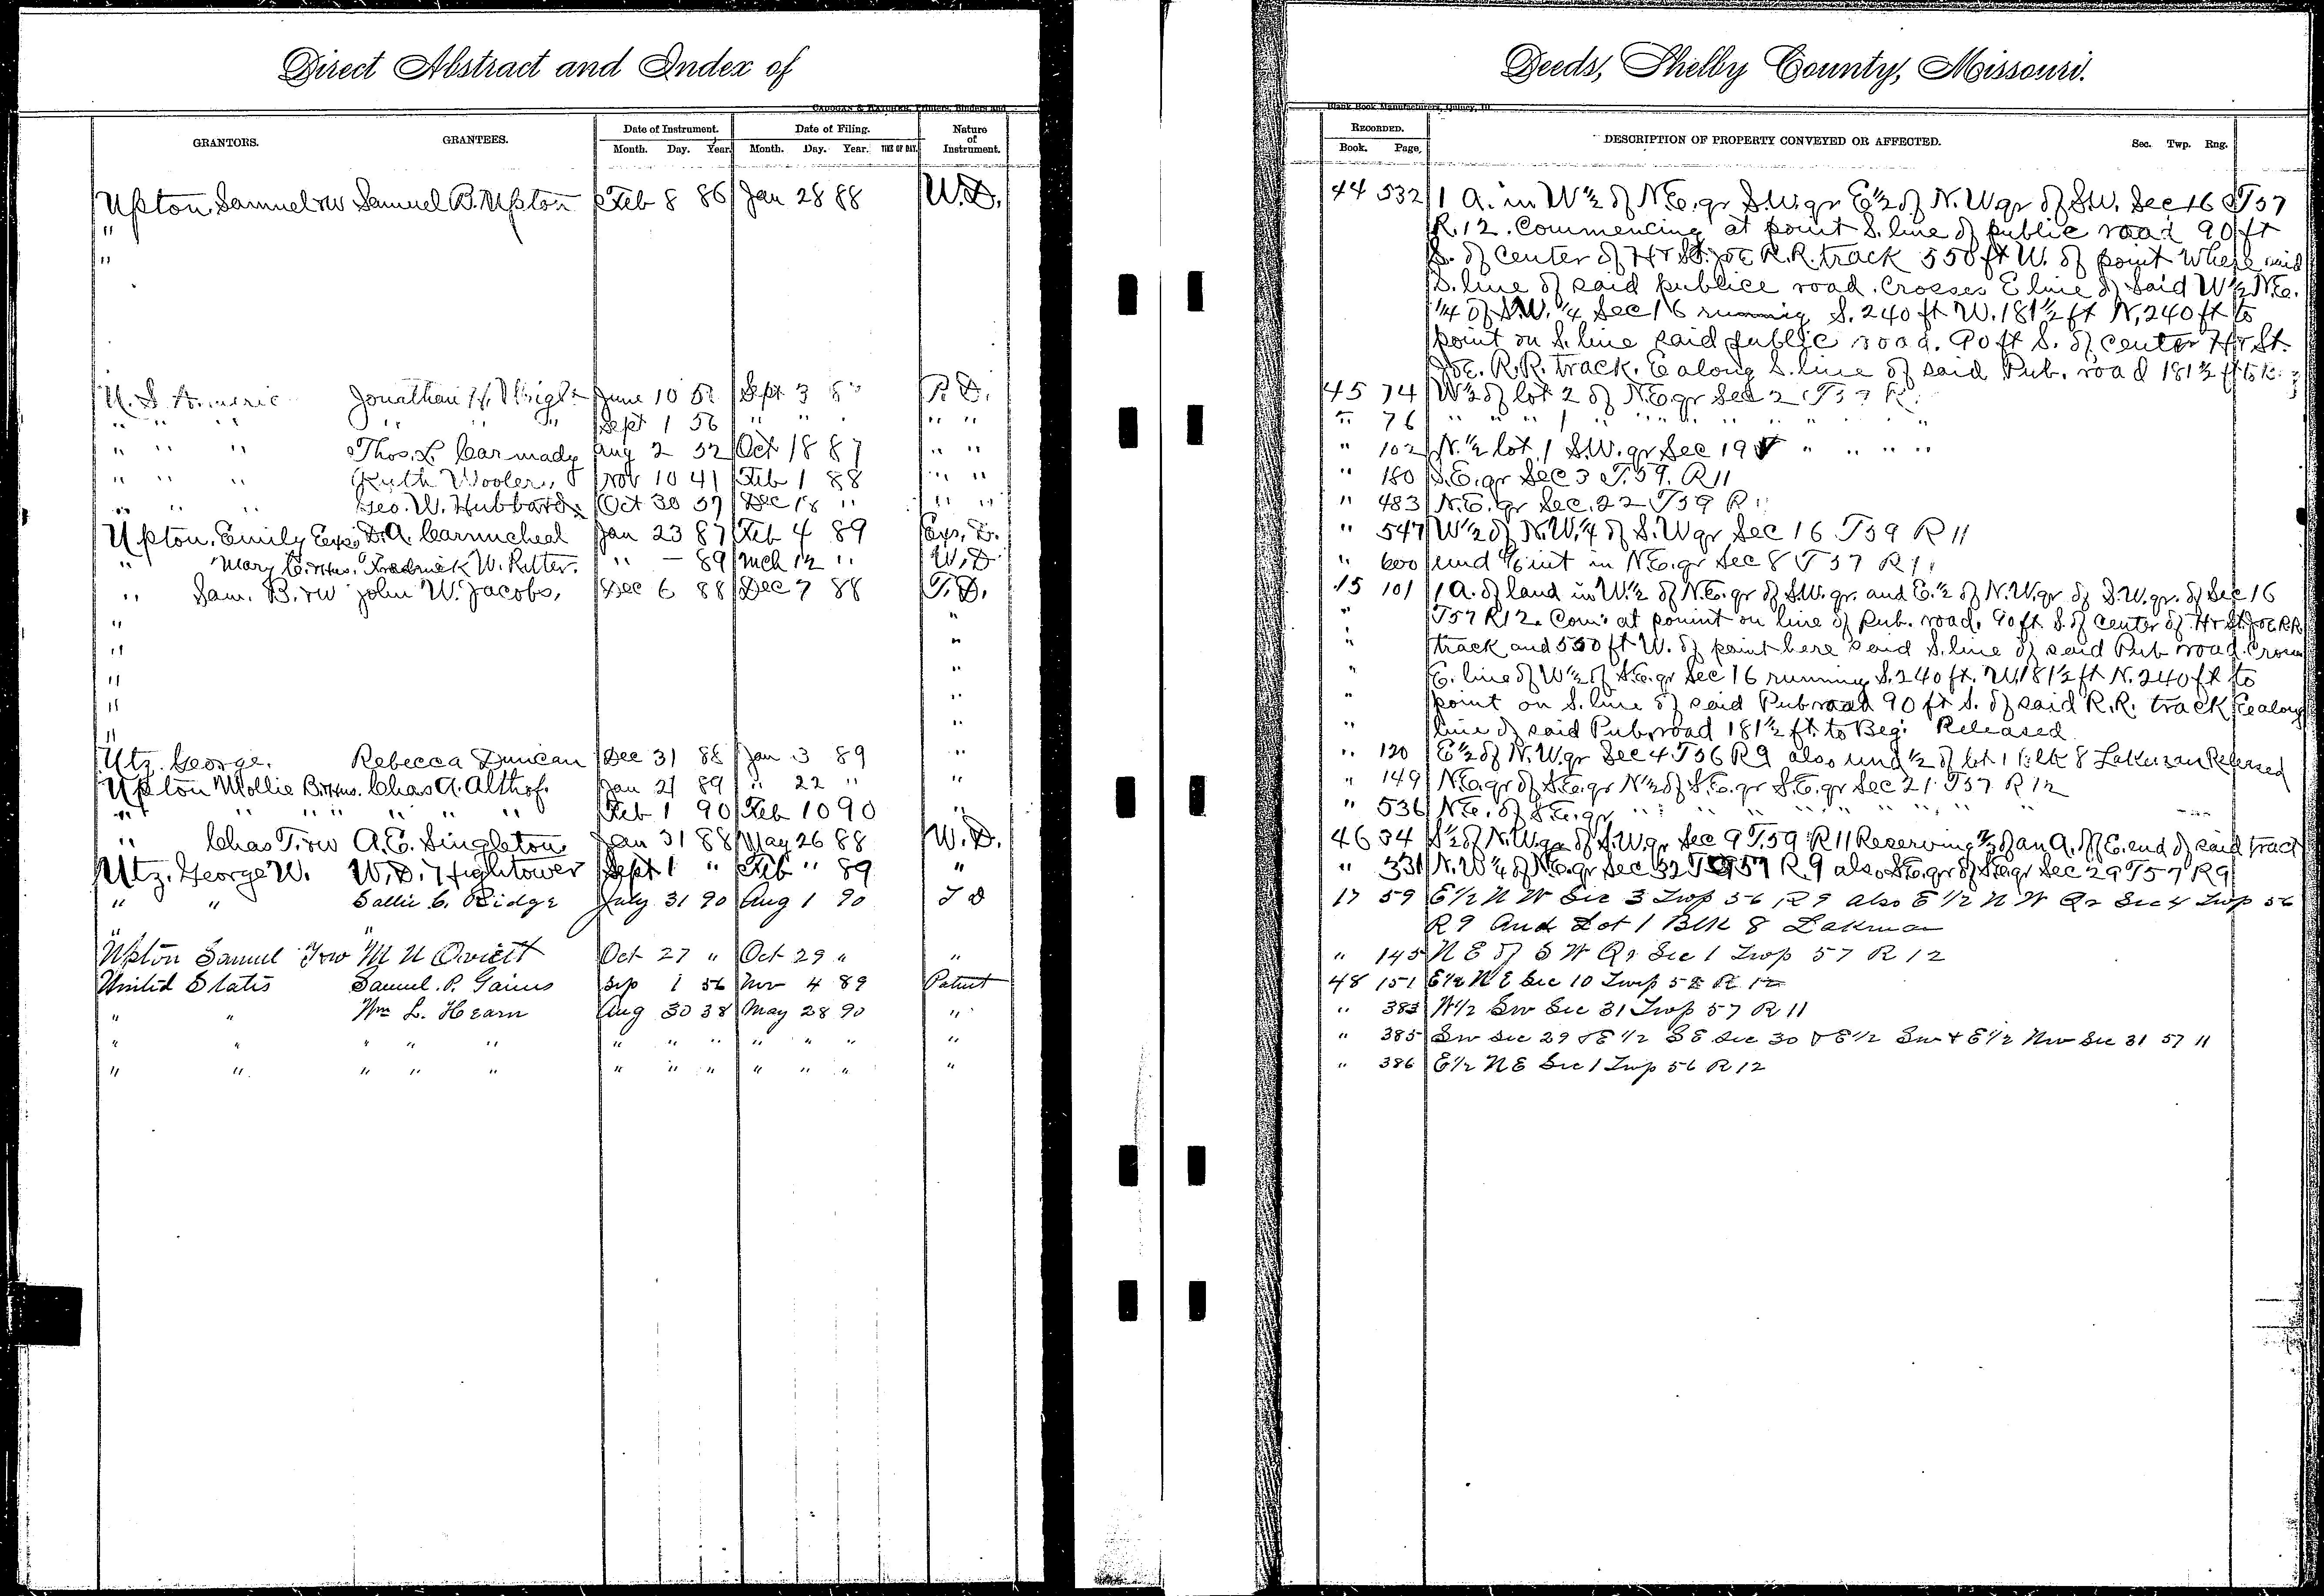 Direct Abstract and Index of
Deeds, Shelby County, Missouri.
CADOGAN & HATCHER, Printers, Binders and
Blank Book Manufacturers, Quincy, Ill.
GRANTORS. GRANTEES. Date of Instrument. Month. Day. Year. Date of Filing. Month. Day. Year. TIME OF DAY. Nature of Instrument.
RECORDED. Book. Page. DESCRIPTION OF PROPERTY CONVEYED OR AFFECTED. Sec. Twp. Rng.
Upton, Samuel & W Samuel B. Upton Feb 8 86 Jan 28 88 W.D. 44 532 1 A. in W½ of N.E. qr S.W. qr E½ of N.W qr of S.W. Sec 16 T57
" R.12. Commencing at point S. line of public road 90 ft
" S. of center of H & St. Joe R.R. track 550 ft W. of point Where said
S. line of said publice road. Crosses E line of Said W½ N.E.
¼ of S.W. ¼ Sec 16 running S. 240 ft W. 181½ ft N. 240 ft to
point on S. line said public road. 90 ft S. of center H & St.
Joe. R.R. track. E along S. line of said Pub. road 181½ ft to
U. S. Jonathan H. June 10 Sept 3 P. D. 45 74 W½ of lot 2 of N.E qr Sec 2
" " " " " Sept 1 56 " " " " " " 76 " " " 1 " " " "
" " " Thos. L. Carmady Aug 2 52 Oct 18 87 " " " 102 N. ½ lot 1 S.W. qr Sec 19 " " " "
" " " Ruth Wooler, Nov 10 41 Feb 1 88 " " " 180 S.E. qr Sec 3 T.59. R11
" " Geo. W. Hubbard Oct 30 57 Dec 18 " " " " 483 N.E. qr Sec. 22 T59 R 11
Upton, Emily Exr. D.A. Carmicheal Jan 23 87 Feb 4 89 Exr. D. " 547 W½ of N.W. ¼ of S.W qr Sec 16 T59 R 11
" Mary E. & Hus. Fredrick W. Ritter. " — 89 Mch 12 " W.D " 600 und int in N.E. qr Sec 8 T57 R 11
" Sam. B. & W John W. Jacobs, Dec 6 88 Dec 7 88 T.D. 45 101 1 A. of land in W.½ of N.E. qr of S.W. qr. and E.½ of N.W. qr of S.W. qr. of Sec 16
" " " T57 R12. Com: at pouint on line of Pub. road. 90 ft S. of Center of H & St. Joe RR
" " " track and 550 ft W. of point here said S. line of said Pub road. Cross
" " " E. line of W½ of S.E. qr Sec 16 running S. 240 ft. W. 181½ ft N. 240 ft to
" " " point on S. line of said Pub road 90 ft S. of said R.R. track E along
" " " line of said Pub road 181½ ft. to Beg: Released
Utz. George. Rebecca Duncan Dec 31 88 Jan 3 89 " " 120 E½ of N.W. qr Sec 4 T56 R9 also und ½ of lot 1 Blk 8 Lakenan Released
Upton Mollie B. & Hus. Chas A. Althof. Jan 21 89 " 22 " " " 149 N.E. qr of S.E. qr N½ of S.E. qr S.E. qr Sec 21 T57 R 12
" " " " " " Feb 1 90 Feb 10 90 " " 536 N.E. of S.E. qr " " " " " " "
" Chas T. & W A.E. Singleton Jan 31 88 May 26 88 W.D. 46 34 S½ of N.W. qr of S.W. qr Sec 9 T.59 R11 Reserving ½ of an A. off E. end of said tract
Utz. George W. W.D. Hightower Sept 1 " Feb " 89 " " 331 N.W ¼ of N.E. qr Sec 32 T57 R9 also S.E. qr of S.E. qr Sec 29 T57 R9
" " Sallie C. Ridge July 31 90 Aug 1 90 T D 17 59 E½ N W Sec 3 Twp 56 R 9 also E ½ N W Qr Sec 4 Twp 56
R 9 And Lot 1 Blk 8 Lakenan
Upton Samuel T & W M U Oviett Oct 27 " Oct 29 " " " 145 N E of S W Qr Sec 1 Twp 57 R 12
United States Samuel. P. Gaines Sep 1 56 Nov 4 89 Patent 48 151 E½ N E Sec 10 Twp 58 R 12
" " Wm L. Hearn Aug 30 38 May 28 90 " " 383 W½ Sw Sec 31 Twp 57 R 11
" " " " " " " " " " " " " 385 Sw Sec 29 & E ½ S E Sec 30 & E ½ Sw & E½ Nw Sec 31 57 11
" " " " " " " " " " " " " 386 E½ N E Sec 1 Twp 56 R 12